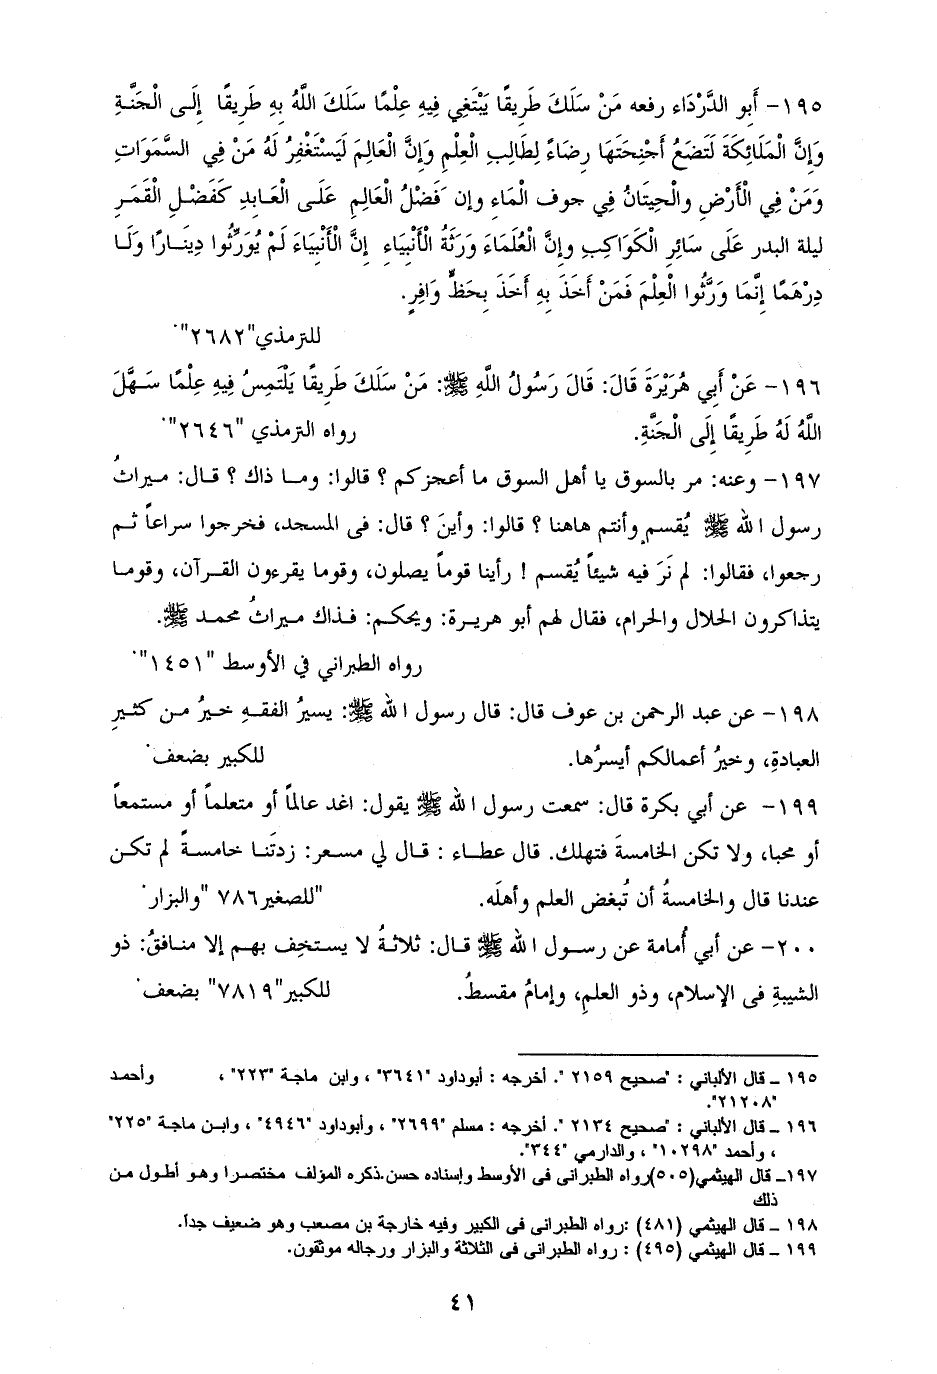 ١٩٥- أَبو الدَّرْدَاء رفعه مَنْ سَلَكَ طَرِيقًا يَبْتَغِي فِيهِ عِلْمًا سَلَكَ اللَّهُ بِهِ طَرِيقًا إِلَى الْجَنَّةِ
وَإِنَّ الْمَلَائِكَةَ لَتَضَعُ أَجْنِحَتَهَا رِضَاءً لِطَالِبِ الْعِلْمِ وَإِنَّ الْعَالِمَ لَيَسْتَغْفِرُ لَهُ مَنْ فِي السَّمَوَاتِ
وَمَنْ فِي الْأَرْضِ والْحِيتَانُ فِي جوف الْمَاءِ وإن فَضْلُ الْعَالِمِ عَلَى الْعَابِدِ كَفَضْلِ الْقَمَرِ
ليلة البدر عَلَى سَائِرِ الْكَوَاكِبِ وإِنَّ الْعُلَمَاءَ وَرَثَةُ الْأَنْبِيَاءِ إِنَّ الْأَنْبِيَاءَ لَمْ يُوَرِّثُوا دِينَارًا وَلَا
دِرْهَمًا إِنَّمَا وَرَّثُوا الْعِلْمَ فَمَنْ أَخَذَ بِهِ أَخَذَ بِحَظٍّ وَافِرٍ.
للترمذي"٢٦٨٢".
١٩٦- عَنْ أَبِي هُرَيْرَةَ قَالَ: قَالَ رَسُولُ اللَّهِ ﷺ: مَنْ سَلَكَ طَرِيقًا يَلْتَمِسُ فِيهِ عِلْمًا سَهَّلَ
اللَّهُ لَهُ طَرِيقًا إِلَى الْجَنَّةِ. رواه الترمذي "٢٦٤٦".
١٩٧- وعنه: مر بالسوق يا أهل السوق ما أعجزكم ؟ قالوا: وما ذاك ؟ قال: ميراثُ
رسول الله ﷺ يُقسم وأنتم هاهنا ؟ قالوا: وأينَ ؟ قال: فى المسجد، فخرجوا سراعاً ثم
رجعوا، فقالوا: لم نَرَ فيه شيئاً يُقسم ! رأينا قوماً يصلون، وقوما يقرءون القرآن، وقوما
يتذاكرون الحلال والحرام، فقال لهم أبو هريرة: ويحكم: فذاك ميراثُ محمد ﷺ.
رواه الطبراني في الأوسط "١٤٥١".
١٩٨- عن عبد الرحمن بن عوف قال: قال رسول الله ﷺ: يسيرُ الفقهِ خيرُ من كثيرِ
العبادةِ، وخيرُ أعمالكم أيسرُها. للكبير بضعف.
١٩٩- عن أبي بكرة قال: سمعت رسول الله ﷺ يقول: اغد عالماً أو متعلماً أو مستمعاً
أو محبا، ولا تكن الخامسةَ فتهلك. قال عطاء : قال لي مسعر: زدتَنا خامسةً لم تكن
عندنا قال والخامسةُ أن تُبغض العلم وأهلَه. "للصغير٧٨٦ "والبزار.
٢٠٠- عن أبي أُمامة عن رسول الله ﷺ قال: ثلاثةُ لا يستخِف بهم إلا منافقُ: ذو
الشيبةِ فى الإسلام، وذو العلمِ، وإمامُ مقسطُ. للكبير"٧٨١٩" بضعف.
١٩٥ ـ قال الألباني : "صحيح ٢١٥٩ ". أخرجه : أبوداود "٣٦٤١" ، وابن ماجة "٢٢٣" ، وأحمد
"٢١٢٠٨".
١٩٦ ـ قال الألباني : "صحيح ٢١٣٤ ". أخرجه : مسلم "٢٦٩٩" ، وأبوداود "٤٩٤٦" ، وابن ماجة "٢٢٥"
، وأحمد "١٠٢٩٨" ، والدارمي "٣٤٤".
١٩٧ـ قال الهيثمي(٥٠٥)رواه الطبرانى فى الأوسط وإسناده حسن.ذكره المؤلف مختصرا وهو أطول من
ذلك
١٩٨ ـ قال الهيثمي (٤٨١) :رواه الطبرانى فى الكبير وفيه خارجة بن مصعب وهو ضعيف جداً.
١٩٩ ـ قال الهيثمي (٤٩٥) : رواه الطبرانى فى الثلاثة والبزار ورجاله موثقون.
٤١